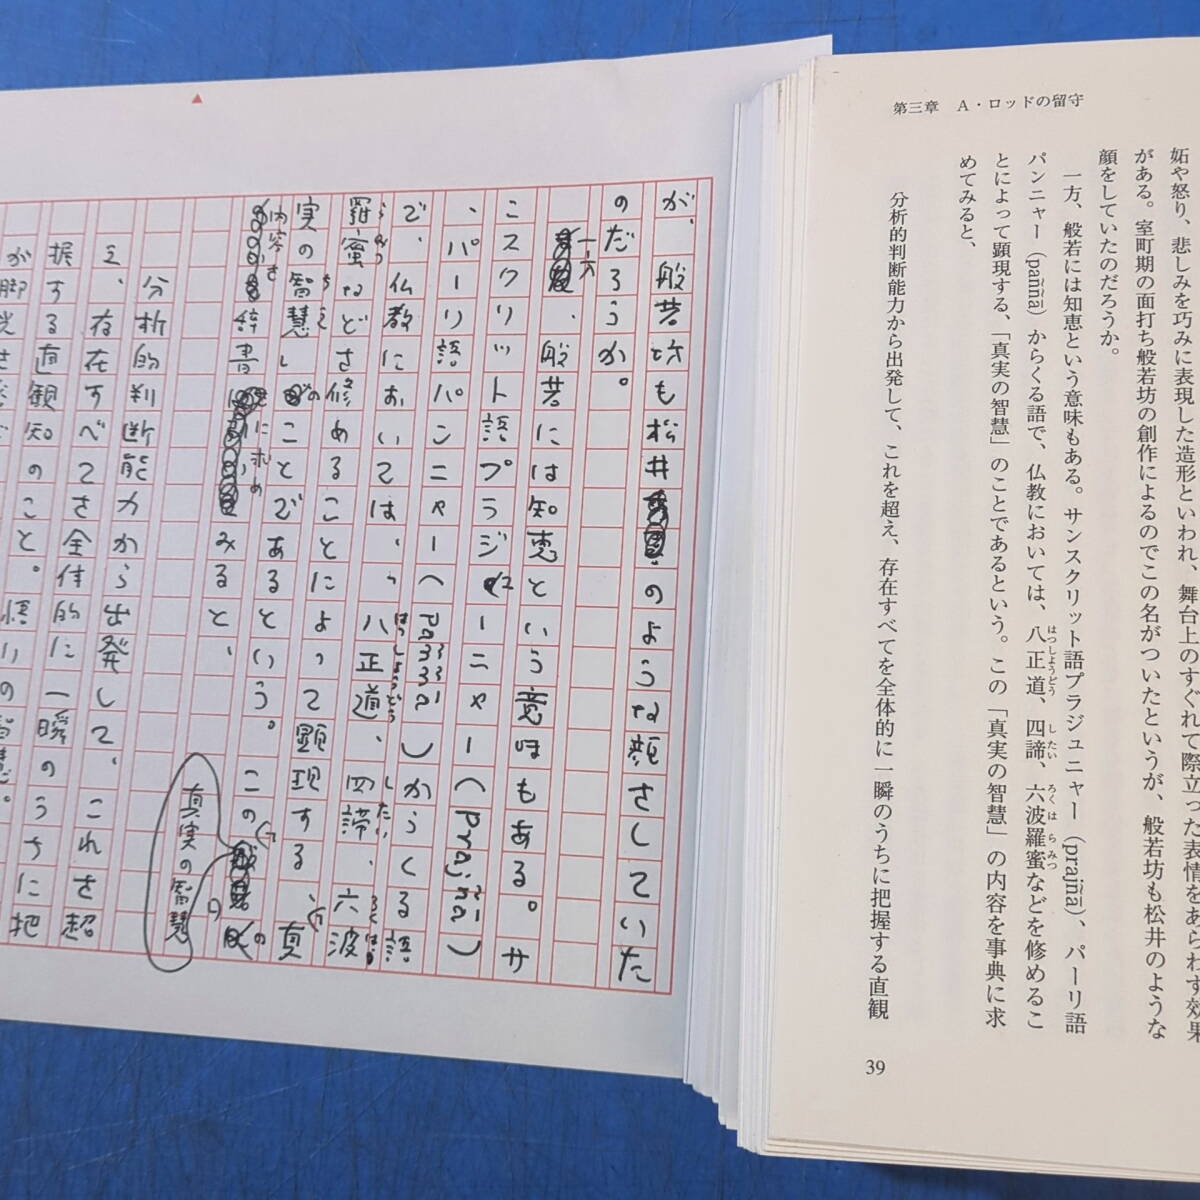 第三章　A・ロッドの留守
妬や怒り、悲しみを巧みに表現した造形といわれ、舞台上のすぐれて際立った表情をあらわす効果
がある。室町期の面打ち般若坊の創作によるのでこの名がついたというが、般若坊も松井のような
顔をしていたのだろうか。
一方、般若には知恵という意味もある。サンスクリット語プラジュニャー（prajñā）、パーリ語
パンニャー（paññā）からくる語で、仏教においては、八正道、四諦、六波羅蜜などを修めるこ
とによって顕現する、「真実の智慧」のことであるという。この「真実の智慧」の内容を事典に求
めてみると、
分析的判断能力から出発して、これを超え、存在すべてを全体的に一瞬のうちに把握する直観
39
が、般若坊も松井のような顔をしていた
のだろうか。
一方、般若には知恵という意味もある。サ
ンスクリット語プラジュニャー（prajñā）
、パーリ語パンニャー（paññā）からくる語
で、仏教においては、八正道、四諦、六波
羅蜜などを修めることによって顕現する、「真
実の智慧」のことであるという。この「真実の智慧」の
内容を辞書に求めてみると、
分析的判断能力から出発して、これを超
え、存在すべてを全体的に一瞬のうちに把
握する直観知のこと。悟りの智慧。